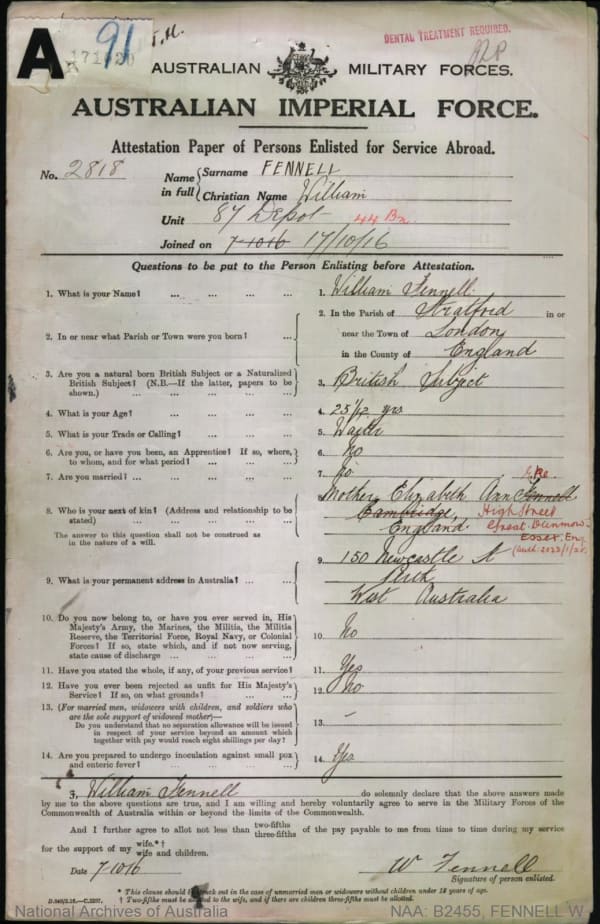 A
91
171020
DENTAL TREATMENT REQUIRED.
AUSTRALIAN MILITARY FORCES.
AUSTRALIAN IMPERIAL FORCE.
Attestation Paper of Persons Enlisted for Service Abroad.
No. 2818
Name in full { Surname FENNELL
Christian Name William
Unit 87 Depot 44 Bn.
Joined on 7-10-16 17/10/16
Questions to be put to the Person Enlisting before Attestation.
1. What is your Name? ... ... ... ... 1. William Fennell
2. In or near what Parish or Town were you born? ... 2. In the Parish of Stratford in or
near the Town of London
in the County of England
3. Are you a natural born British Subject or a Naturalized
British Subject? (N.B.—If the latter, papers to be
shown.) ... ... ... ... 3. British Subject
4. What is your Age? ... ... ... ... 4. 25 1/12 yrs
5. What is your Trade or Calling? ... ... ... 5. Waiter
6. Are you, or have you been, an Apprentice? If so, where,
to whom, and for what period? ... ... ... 6. No
7. Are you married? ... ... ... ... 7. No
8. Who is your next of kin? (Address and relationship to be
stated) ... ... ... ...
The answer to this question shall not be construed as
in the nature of a will.
8. Mother, Elizabeth Ann Fennell
Cambridge, High Street
England. Great Dunmow
Essex. Eng.
9. What is your permanent address in Australia? ... ... 9. 150 Newcastle St
Perth
West Australia
10. Do you now belong to, or have you ever served in, His
Majesty's Army, the Marines, the Militia, the Militia
Reserve, the Territorial Force, Royal Navy, or Colonial
Forces? If so, state which, and if not now serving,
state cause of discharge ... ... ... 10. No
11. Have you stated the whole, if any, of your previous service? 11. Yes
12. Have you ever been rejected as unfit for His Majesty's
Service? If so, on what grounds? ... ... 12. No
13. (For married men, widowers with children, and soldiers who
are the sole support of widowed mother)—
Do you understand that no separation allowance will be issued
in respect of your service beyond an amount which
together with pay would reach eight shillings per day? 13. –
14. Are you prepared to undergo inoculation against small pox
and enteric fever? ... ... ... ... 14. Yes
I, William Fennell do solemnly declare that the above answers made
by me to the above questions are true, and I am willing and hereby voluntarily agree to serve in the Military Forces of the
Commonwealth of Australia within or beyond the limits of the Commonwealth.
And I further agree to allot not less than two-fifths three-fifths of the pay payable to me from time to time during my service
for the support of my wife.*† wife and children.
Date 7-10-16 W Fennell
Signature of person enlisted.
* This clause should be struck out in the case of unmarried men or widowers without children under 18 years of age.
† Two-fifths must be allotted to the wife, and if there are children three-fifths must be allotted.
National Archives of Australia NAA: B2455, FENNELL W